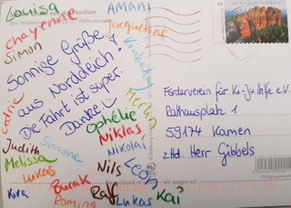 Louisa
Amani
Chayenne
Jacqueline
Simon
Sonnige Grüße
aus Norddeich!
Die Fahrt ist super.
Danke
Cedric
Merlin
Ophélie
Judith
Simone
Niklas
Melissa
Nikolai
Lukas
Nils
Leon
Kira
Burak
Ralf
Kai
Romina
Lukas
Förderverein für Ki-Ju-Hilfe e.V.
Rathausplatz 1
59174 Kamen
z.Hd. Herr Gibbels